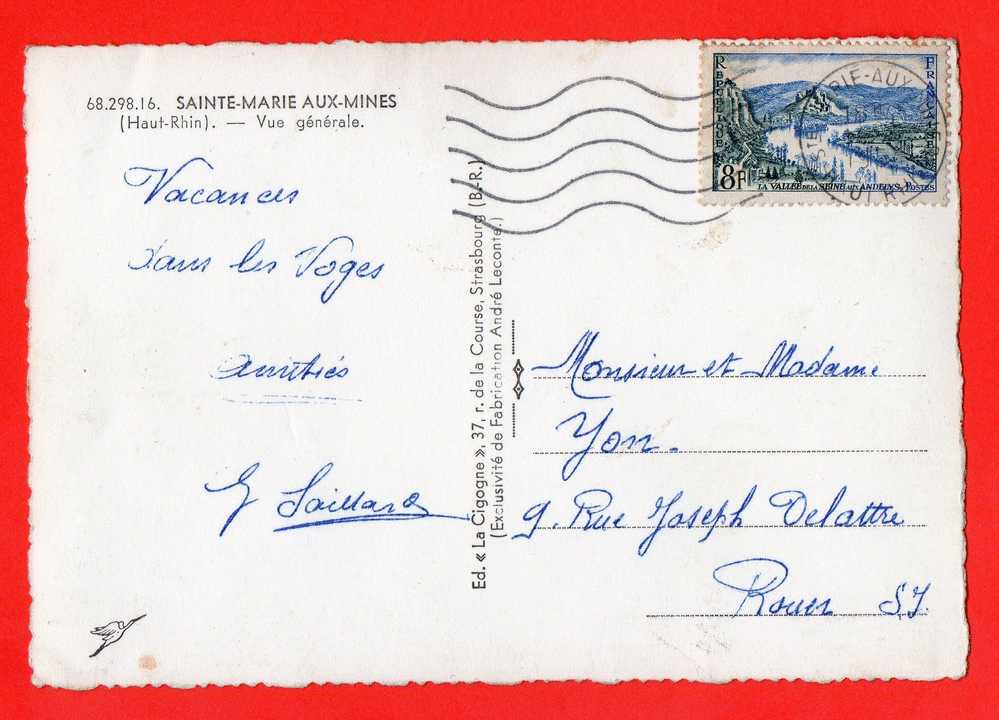 68.298.16. SAINTE-MARIE AUX-MINES
(Haut-Rhin). — Vue générale.
Vacances
dans les Voges
amitiés
G Saillard
Ed. « La Cigogne », 37, r. de la Course, Strasbourg (B.-R.)
(Exclusivité de Fabrication André Leconte.)
REPUBLIQUE FRANÇAISE
8F
LA VALLÉE DE LA SEINE AUX ANDELYS
POSTES
RIE-AUX
Monsieur et Madame
Yon.
9. Rue Joseph Delattre
Rouen S.I.